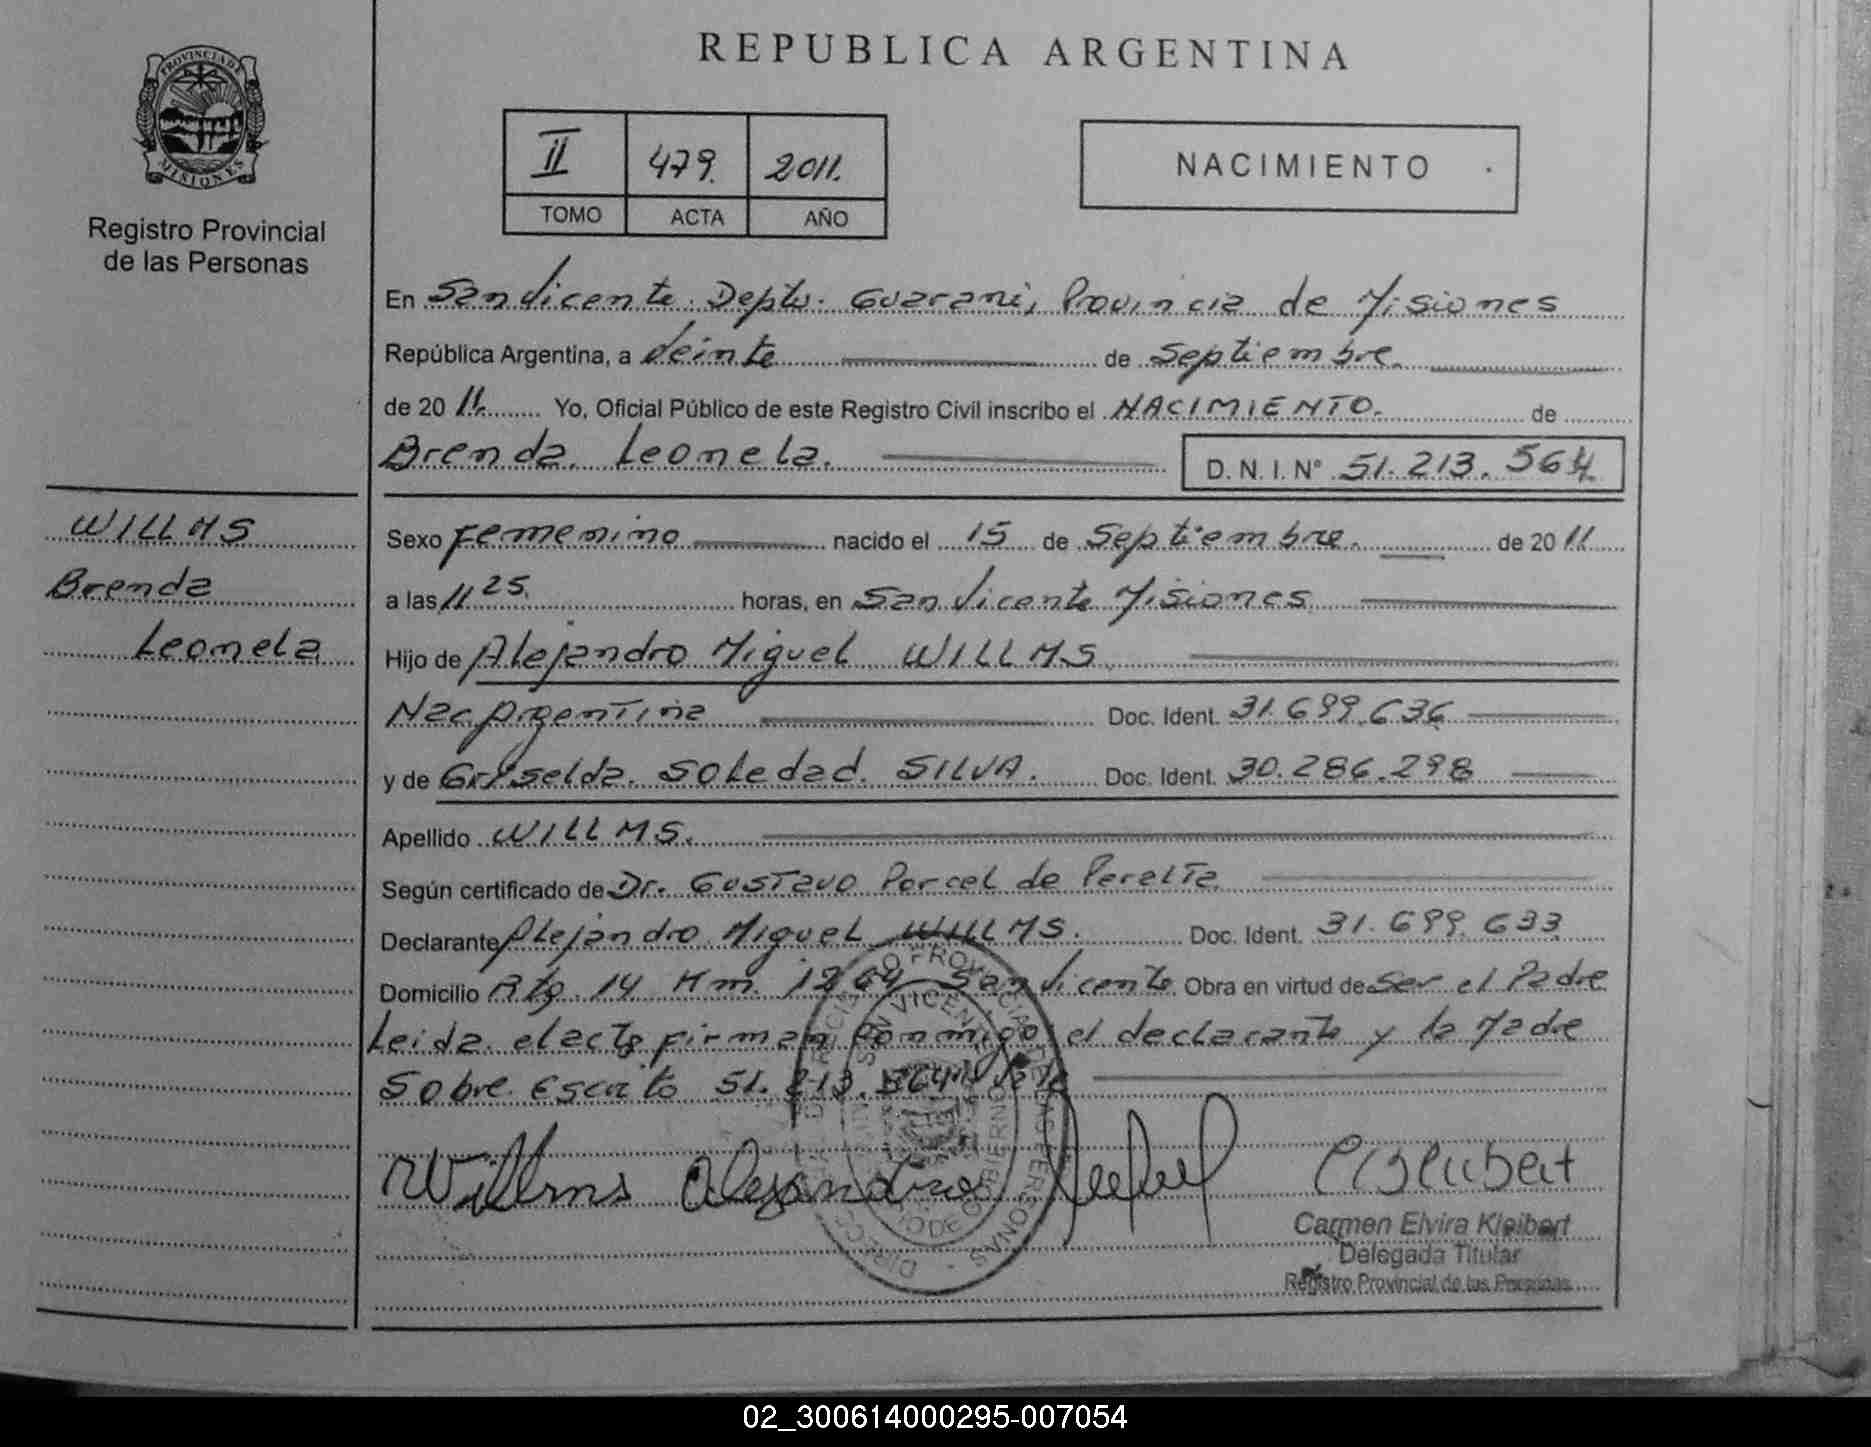 REPUBLICA ARGENTINA
PROVINCIA DE
MISIONES
Registro Provincial
de las Personas
II 479. 2011.
TOMO ACTA AÑO
NACIMIENTO
En San Vicente. Depto. Guarani, Provincia de Misiones
República Argentina, a Veinte de Septiembre.
de 20 11. Yo, Oficial Público de este Registro Civil inscribo el NACIMIENTO. de
Brenda Leonela. D. N. I. Nº 51.213.564
WILLMS
Brenda
Leonela
Sexo Femenino nacido el 15 de Septiembre. de 20 11
a las 11 25. horas, en San Vicente Misiones
Hijo de Alejandro Miguel WILLMS.
Nac Argentina Doc. Ident. 31.699.636
y de Griselda Soledad. SILVA. Doc. Ident. 30.286.298
Apellido WILLMS.
Según certificado de Dr. Gustavo Porcel de Peralta
Declarante Alejandro Miguel WILLMS. Doc. Ident. 31.699.633
Domicilio Rta. 14 Km. 1264 San Vicente Obra en virtud de Ser el Padre
Leida el acta firman conmigo el declarante y la Madre
Sobre Escrito 51.213.564
Willms Alejandro
Carmen Elvira Kleibert
Delegada Titular
Registro Provincial de las Personas
02_300614000295-007054